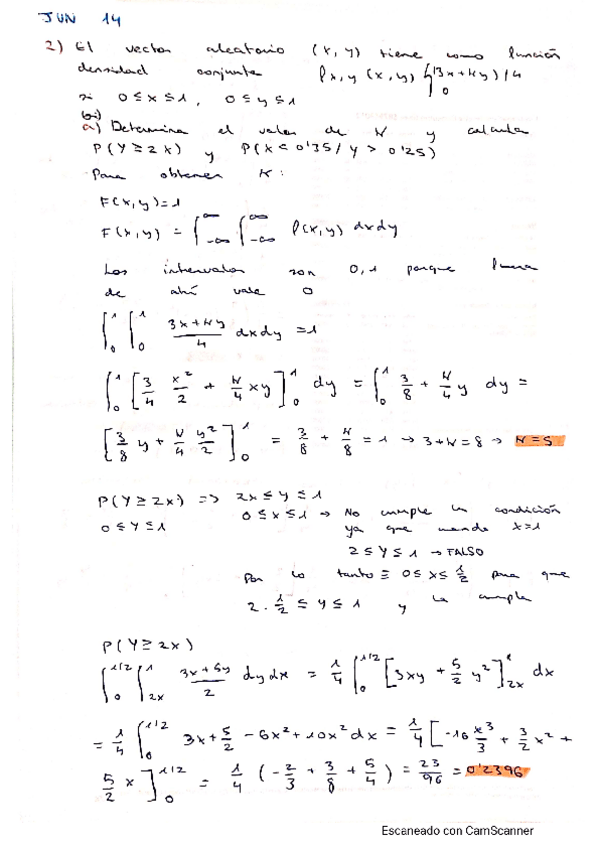 JUN 14
2) El vector aleatorio (x, y) tiene como función
densidad conjunta fx,y (x,y) { (3x+Ky)/4
0
si 0≤x≤1, 0≤y≤1
a) Determina el valor de K y calcula
P(Y≥2X) y P(X<0'35/Y>0'25)
Para obtener K:
F(x,y)=1
F(x,y) = ∫-∞^∞ ∫-∞^∞ f(x,y) dxdy
Los intervalos son 0,1 porque fuera
de ahí vale 0
∫0^1 ∫0^1 (3x+Ky)/4 dxdy = 1
∫0^1 [3/4 x²/2 + K/4 xy]0^1 dy = ∫0^1 3/8 + K/4 y dy =
[3/8 y + K/4 y²/2]0^1 = 3/8 + K/8 = 1 → 3+K=8 → K=5
P(Y≥2X) => 2x≤y≤1
0≤Y≤1 0≤x≤1 → No cumple la condición
ya que cuando x=1
2≤Y≤1 → FALSO
Por lo tanto ≡ 0≤x≤1/2 para que
2·1/2 ≤ y ≤ 1 y la cumple
P(Y≥2X)
∫0^1/2 ∫2x^1 (3x+5y)/2 dydx = 1/4 ∫0^1/2 [3xy + 5/2 y²]2x^1 dx
= 1/4 ∫0^1/2 3x + 5/2 - 6x² + 10x² dx = 1/4 [-16 x³/3 + 3/2 x² +
5/2 x]0^1/2 = 1/4 (-2/3 + 3/8 + 5/4) = 23/96 = 0'2396
Escaneado con CamScanner